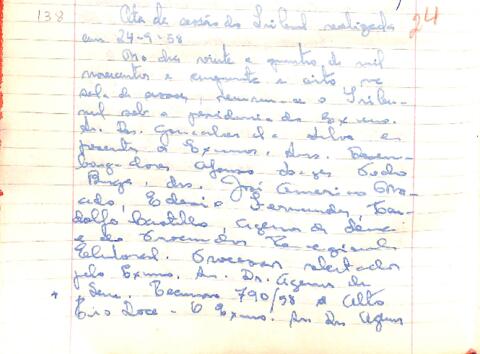 138 Ata da sessão do Tribunal realizada 24
em 24-9-58
Ao dia vinte e quatro de mil
novecentos e cinquenta e oito na
sala de sessões, reuniu-se o Tribu-
nal sob a presidencia do Exmo.
Sr. Des. Gonçalves da Silva e
presentes os Exmos. Srs. Desem-
bargadores Afonso Lages, Pedro
Braga, drs. José Americo Ma-
cedo, Edesio Fernandes,
dolfo Castilho, Agenor de Sena
e do Procurador Regional
Eleitoral. Processos relatados
pelo Exmo. Sr. Dr. Agenor de
Sena. Recurso 790/58 de Alto
Rio Doce - O Exmo. Sr. Dr. Agenor